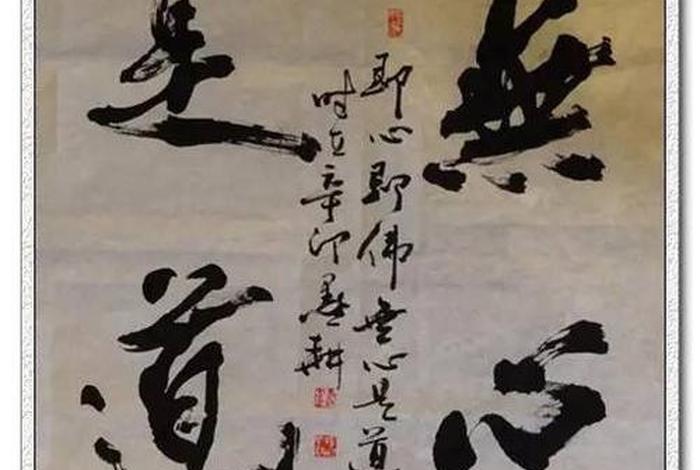 無心
即心即佛無心是道
时在辛卯墨耕
是道